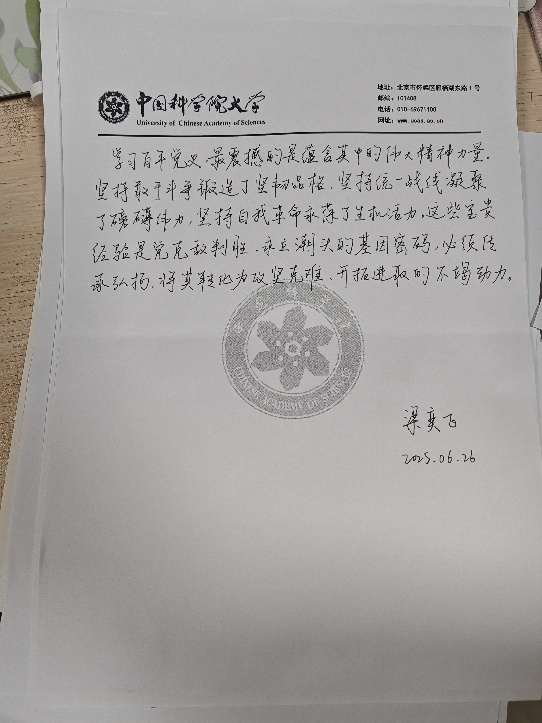 中国科学院大学
University of Chinese Academy of Sciences
地址：北京市怀柔区雁栖湖东路1号
邮编：101408
电话：010-69671100
网址：www.ucas.ac.cn
学习百年党史，最震撼的是蕴含其中的伟大精神力量。
坚持敢于斗争锻造了坚韧品格，坚持统一战线凝聚
了磅礴伟力，坚持自我革命永葆了生机活力。这些宝贵
经验是党克敌制胜、永立潮头的基因密码，必须传
承弘扬，将其转化为攻坚克难、开拓进取的不竭动力。
CHINESE ACADEMY OF SCIENCES
梁奕飞
2025.06.26